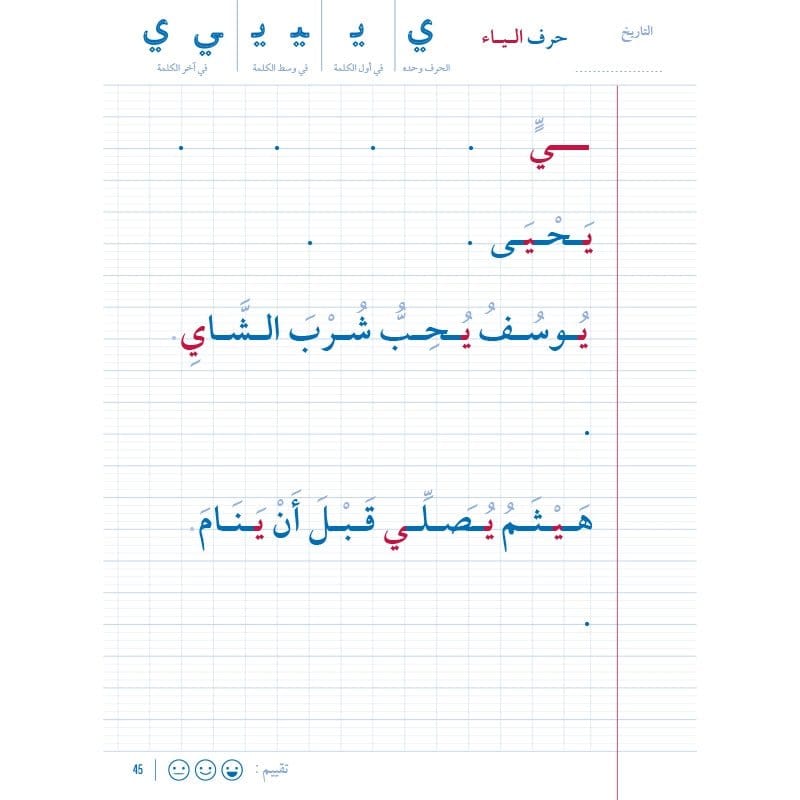 التاريخ
حرف الـيـاء
ي يـ ـيـ يـ ـي ي
الحرف وحده في أول الكلمة في وسط الكلمة في آخر الكلمة
ـــيٍّ
يَـحْـيَـى
يُـوسُـفُ يُـحِـبُّ شُـرْبَ الـشَّـايِ.
هَـيْـثَـمُ يُـصَـلِّـي قَـبْـلَ أَنْ يَـنَـامَ.
تقييم :
45